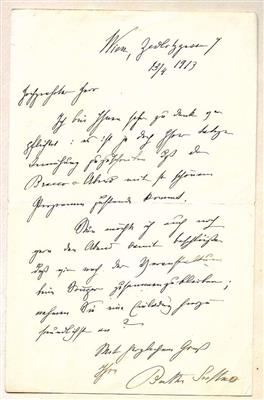 Wien, Zedlitzgasse 7
13/4 1913
Hochgeehrter Herr
Ich bin Ihnen sehr zu Dank ver-
pflichtet: es ist ja doch Ihrer
Bemühung zuzuschreiben daß der
Abend mit so schönem
Programm zustande kommt.
Nun möchte ich auch noch
gern den Abend damit beschließen
daß wir nach der Veranstaltung
beim zusammenzubleiben;
nehmen Sie eine Einladung
freundlichst an?
Mit herzlichem Gruß
Ihre